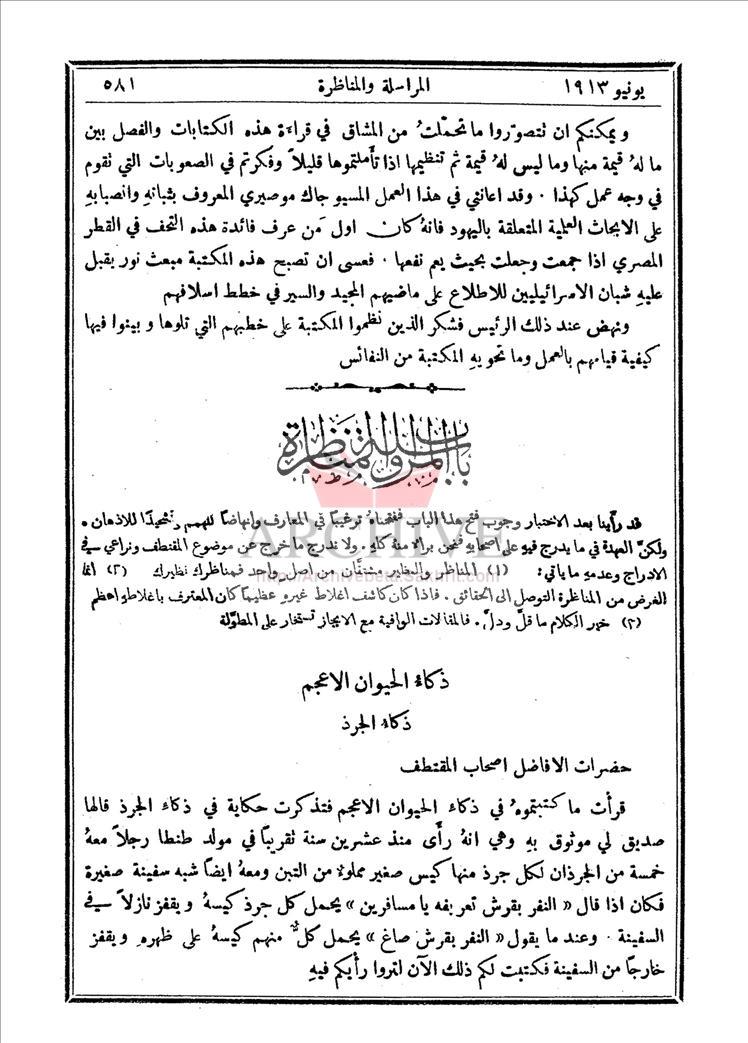 يونيو ١٩١٣ المراسلة والمناظرة ٥٨١
ويمكنكم ان تتصوّروا ما تحمّلتُ من المشاق في قراءة هذه الكتابات والفصل بين
ما لهُ قيمة منها وما ليس لهُ قيمة ثم تنظيمها اذا تأملتموها قليلاً وفكرتم في الصعوبات التي تقوم
في وجه عمل كهذا ٠ وقد اعانني في هذا العمل المسيو جاك موصيري المعروف بثباتهِ وانصبابهِ
على الابحاث العلمية المتعلقة باليهود فانهُ كان اول مَن عرف فائدة هذه التحف في القطر
المصري اذا جمعت وجعلت بحيث يعم نفعها ٠ فعسى ان تصبح هذه المكتبة مبعث نور يقبل
عليهِ شبان الاسرائيليين للاطلاع على ماضيهم المجيد والسير في خطط اسلافهم
ونهض عند ذلك الرئيس فشكر الذين نظموا المكتبة على خطبهم التي تلوها وبينوا فيها
كيفية قيامهم بالعمل وما تحويهِ المكتبة من النفائس
باب المراسلة والمناظرة
قد رأينا بعد الاختبار وجوب فتح هذا الباب ففتحناهُ ترغيبًا في المعارف وإنهاضًا للهمم وتشحيذًا للاذهان ٠
ولكنّ العهدة في ما يدرج فيهِ على اصحابهِ فنحن براء منهُ كلهِ ٠ ولا ندرج ما خرج عن موضوع المقتطف ونراعي في
الادراج وعدمهِ ما ياتي : (١) المناظر والنظير مشتقّان من اصل واحد فمناظرك نظيرك (٢) انما
الغرض من المناظرة التوصل الى الحقائق ٠ فاذا كان كاشف اغلاط غيرهِ عظيمًا كان المعترف باغلاطهِ اعظم
(٣) خير الكلام ما قلّ ودلّ ٠ فالمقالات الوافية مع الايجاز تستخار على المطوّلة
ARCHIVE
http://Archivebeta.Sakhrit.com
ذكاء الحيوان الاعجم
ذكاء الجرذ
حضرات الافاضل اصحاب المقتطف
قرأت ما كتبتموهُ في ذكاء الحيوان الاعجم فتذكرت حكاية في ذكاء الجرذ قالها
صديق لي موثوق بهِ وهي انهُ رأى منذ عشرين سنة تقريبًا في مولد طنطا رجلاً معهُ
خمسة من الجرذان لكل جرذ منها كيس صغير مملوء من التبن ومعهُ ايضًا شبه سفينة صغيرة
فكان اذا قال « النفر بقرش تعريفه يا مسافرين » يحمل كل جرذ كيسهُ ويقفز نازلاً في
السفينة ٠ وعند ما يقول « النفر بقرش صاغ » يحمل كلٌّ منهم كيسهُ على ظهرهِ ويقفز
خارجًا من السفينة فكتبت لكم ذلك الآن لتروا رأيكم فيهِ